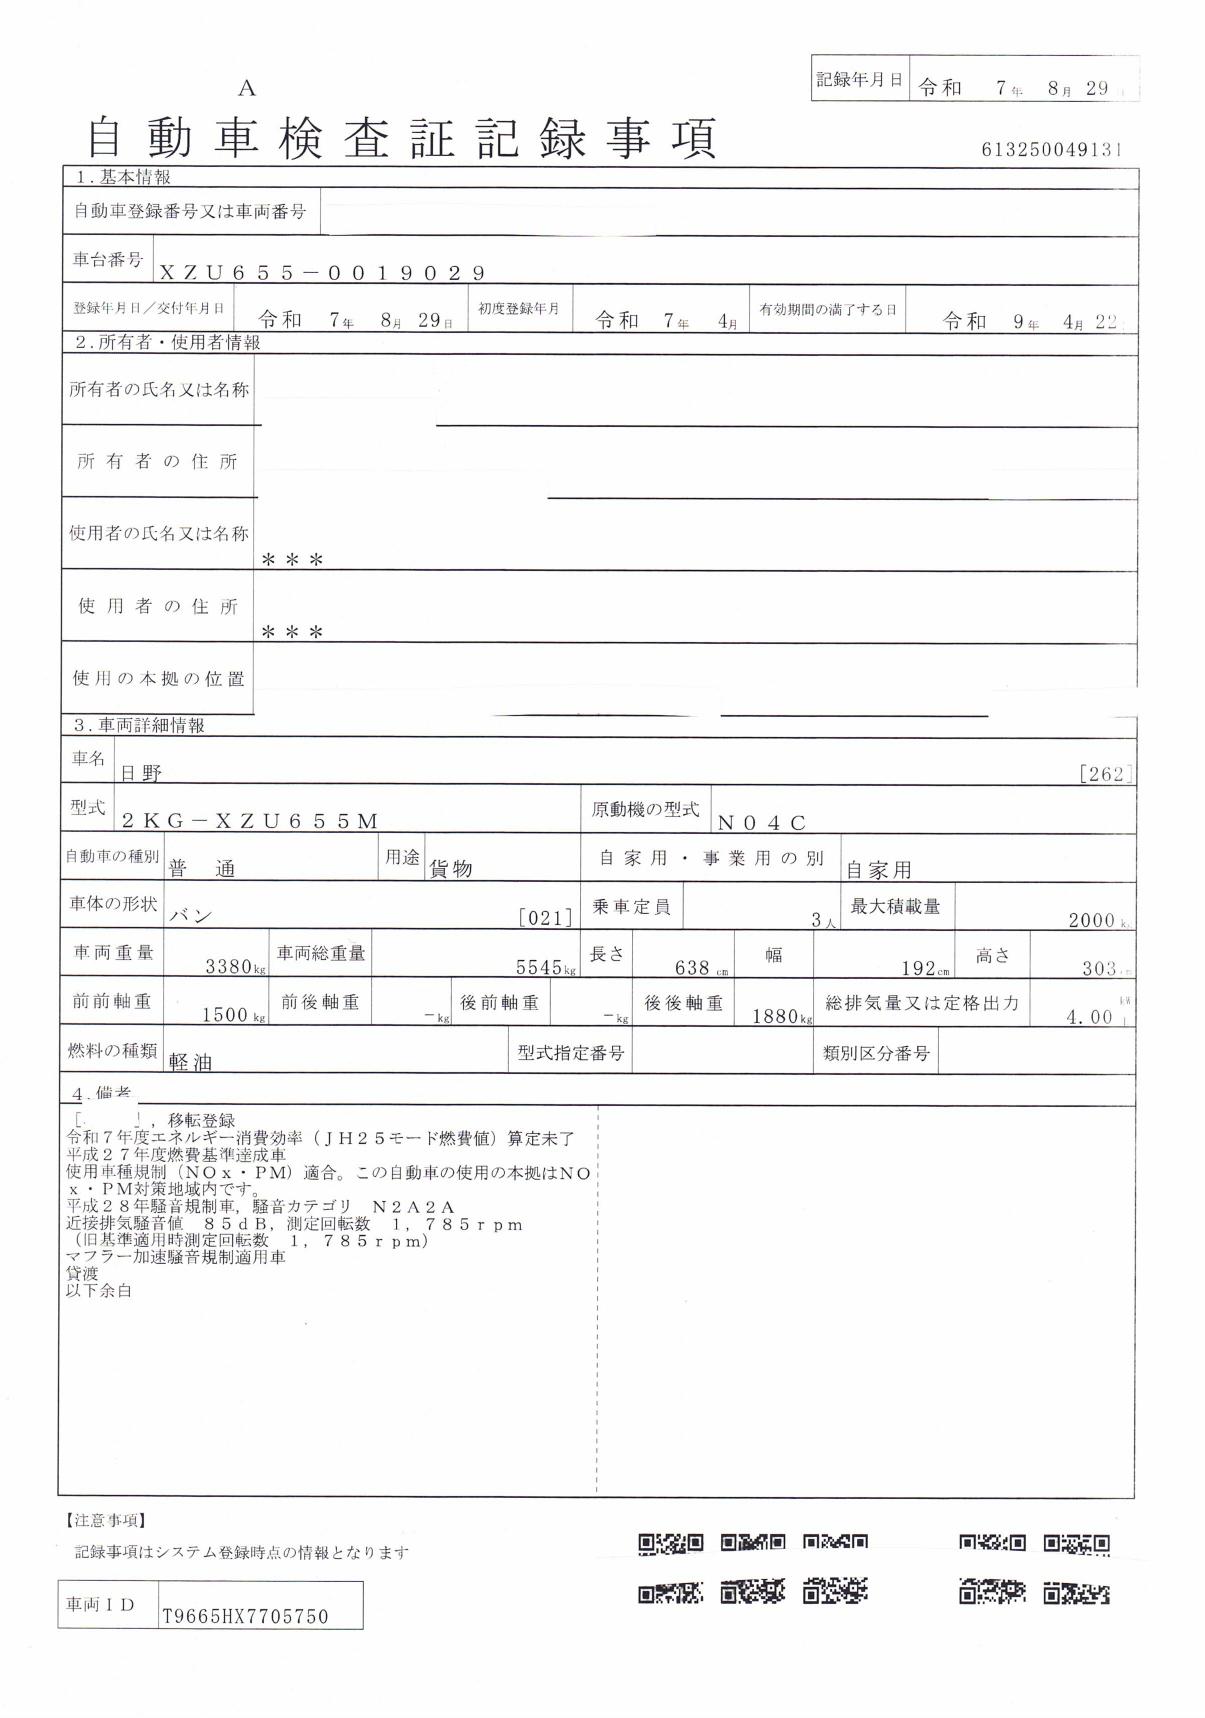 記録年月日 令和 7年 8月 29
A
自動車検査証記録事項
613250049131
1.基本情報
自動車登録番号又は車両番号
車台番号 XZU655-0019029
登録年月日/交付年月日 令和 7年 8月 29日 初度登録年月 令和 7年 4月 有効期間の満了する日 令和 9年 4月 22
2.所有者・使用者情報
所有者の氏名又は名称
所有者の住所
使用者の氏名又は名称 ***
使用者の住所 ***
使用の本拠の位置
3.車両詳細情報
車名 日野 [262]
型式 2KG-XZU655M 原動機の型式 N04C
自動車の種別 普通 用途 貨物 自家用・事業用の別 自家用
車体の形状 バン [021] 乗車定員 3人 最大積載量 2000
車両重量 3380kg 車両総重量 5545kg 長さ 638cm 幅 192cm 高さ 303
前前軸重 1500kg 前後軸重 -kg 後前軸重 -kg 後後軸重 1880kg 総排気量又は定格出力 4.00 kW
燃料の種類 軽油 型式指定番号 類別区分番号
4.備考
[ ],移転登録
令和7年度エネルギー消費効率(JH25モード燃費値)算定未了
平成27年度燃費基準達成車
使用車種規制(NOx・PM)適合。この自動車の使用の本拠はNO
x・PM対策地域内です。
平成28年騒音規制車,騒音カテゴリ N2A2A
近接排気騒音値 85dB,測定回転数 1,785rpm
(旧基準適用時測定回転数 1,785rpm)
マフラー加速騒音規制適用車
貸渡
以下余白
【注意事項】
記録事項はシステム登録時点の情報となります
車両ID T9665HX7705750